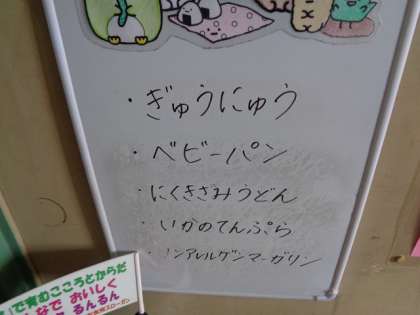 ・ぎゅうにゅう
・ベビーパン
・にくきざみうどん
・いかのてんぷら
・ノンアレルゲンマーガリン
で育むこころとからだ
なで おいしく
るんるん